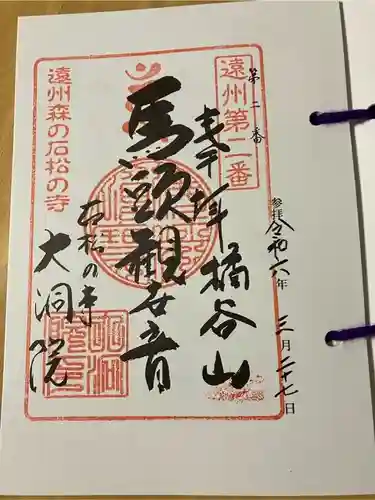 第二番
遠州第二番
参拝 令和六年三月二十七日
奉拝 橘谷山
馬頭観世音
石松の寺
大洞院
遠州森の石松の寺